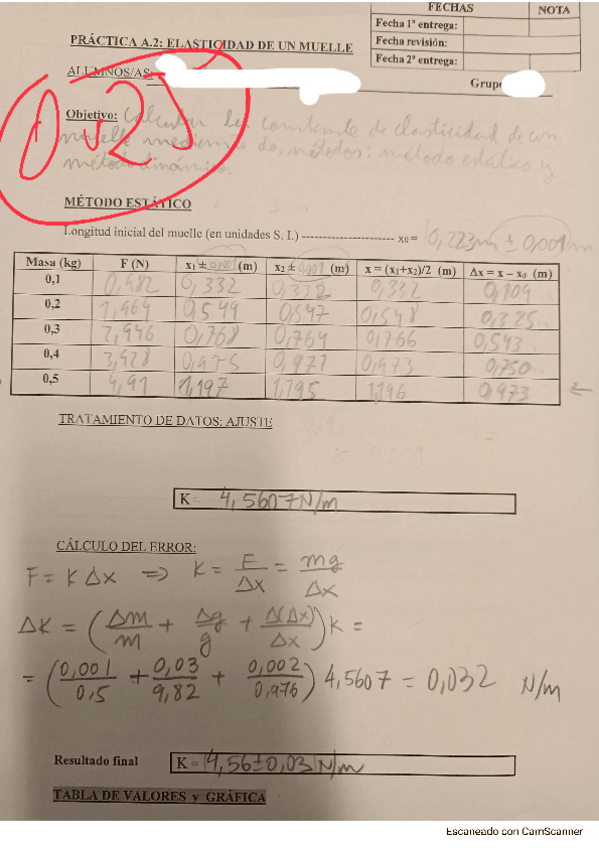 FECHAS NOTA
Fecha 1ª entrega:
Fecha revisión:
Fecha 2ª entrega:
PRÁCTICA A.2: ELASTICIDAD DE UN MUELLE
ALUMNOS/AS:
Grupo
0.25
Objetivo: Calcular la constante de elasticidad de un
muelle mediante dos métodos: método estático y
método dinámico.
MÉTODO ESTÁTICO
Longitud inicial del muelle (en unidades S. I.) ---------------------- x₀ = 0,223m ± 0,001m
Masa (kg) F (N) x₁ ± 0,001 (m) x₂ ± 0,001 (m) x = (x₁+x₂)/2 (m) Δx = x – x₀ (m)
0,1 0,982 0,332 0,332 0,332 0,109
0,2 1,964 0,549 0,547 0,548 0,325
0,3 2,946 0,768 0,764 0,766 0,543
0,4 3,928 0,975 0,971 0,973 0,750
0,5 4,91 1,197 1,195 1,196 0,973 ←
TRATAMIENTO DE DATOS: AJUSTE
K = 4,5607 N/m
CÁLCULO DEL ERROR:
F = K Δx ⇒ K = F/Δx = mg/Δx
ΔK = (Δm/m + Δg/g + Δ(Δx)/Δx) K =
= (0,001/0,5 + 0,03/9,82 + 0,002/0,976) 4,5607 = 0,032 N/m
Resultado final K = 4,56±0,03 N/m
TABLA DE VALORES y GRÁFICA
Escaneado con CamScanner